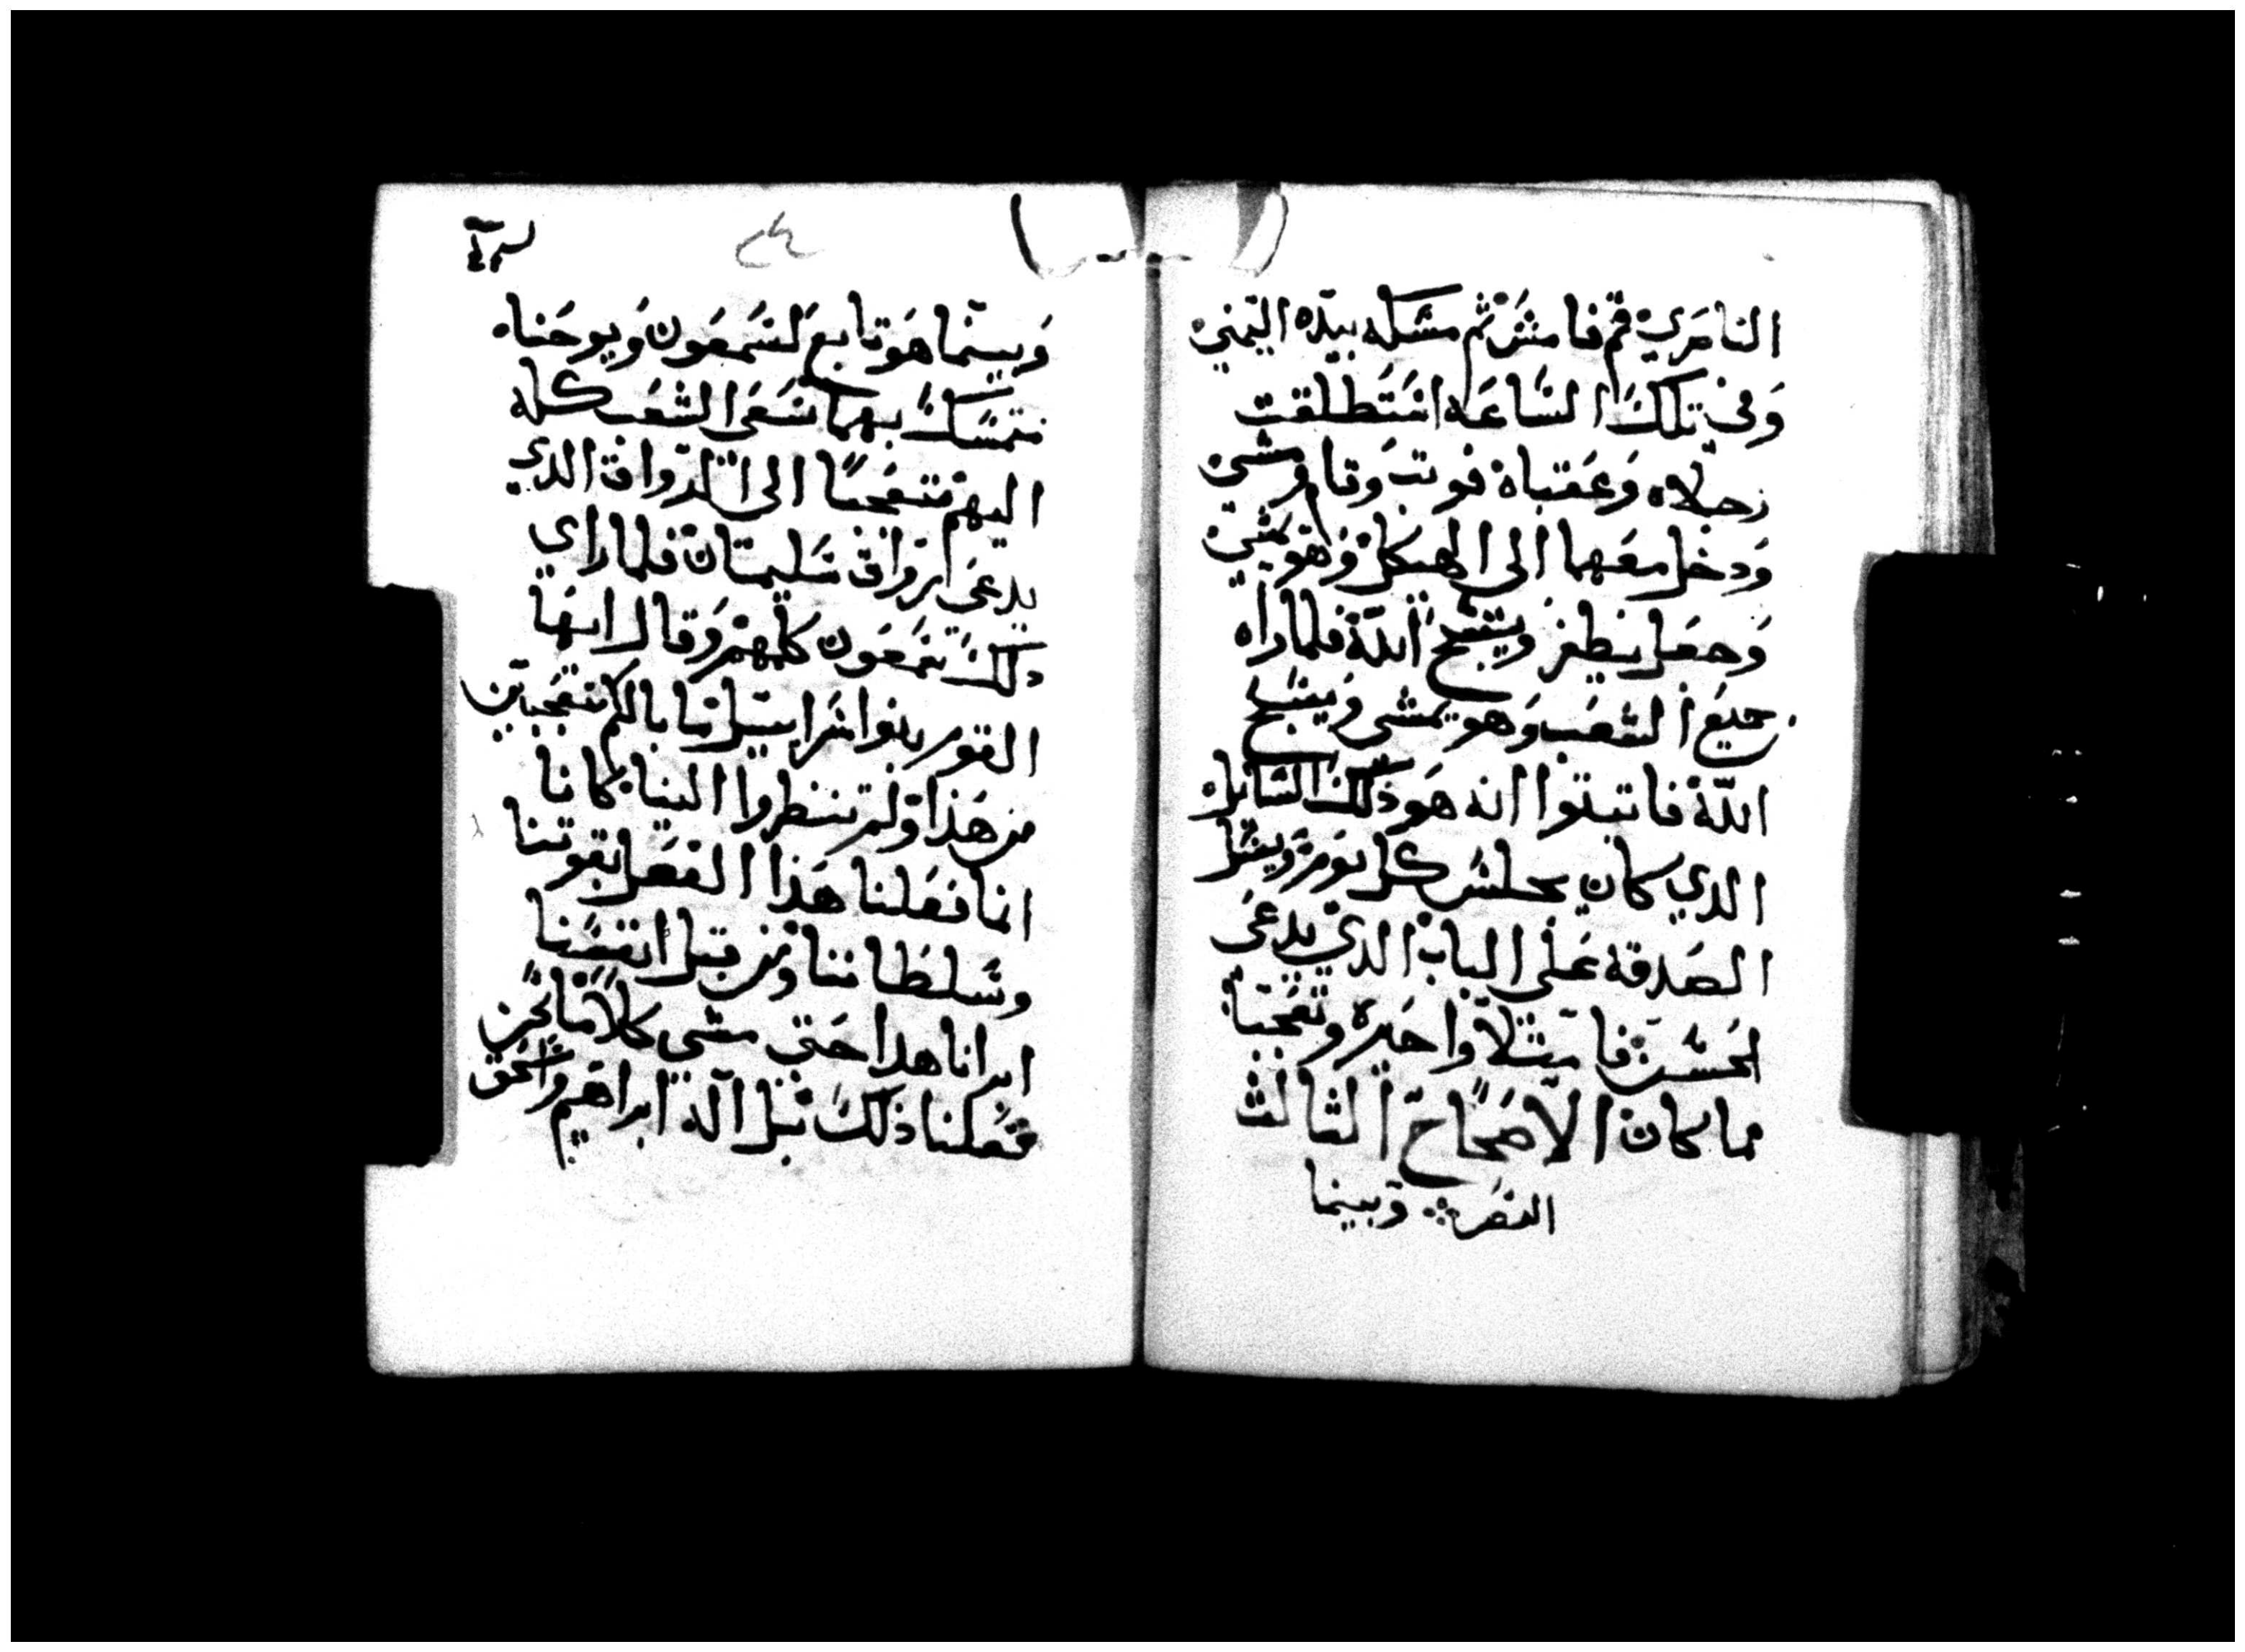 الناصري قم فامش ثم مسكه بيده اليمني
وفي تلك الساعه استطلقت
رجلاه وعقباه فوتب وقام ومشي
ودخل معهما الى الهيكل وهو يمشي
وجعل يطفر ويسبح الله فلما راه
جميع الشعب وهو يمشي ويسبح
الله فاتبتوا انه هو ذلك السايل
الدي كان يجلس كل يوم ويسل
الصدقه على الباب الدي يدعى
لحسن فامتلاوا حيره وتعجبا
مما كان الاصحاح الثالث
النص وبينما
وبينما هو تابع لسمعون ويوحنا
متمسك بهما سعى الشعب كله
اليهم متعجبا الى الرواق الدي
يدعى ارواق سليمان فلما راي
دلك سمعون كلمهم وقال ايها
القوم بنوا اسراييل ما بالكم متعجبين
من هذا ولم تنظروا الينا كانا
انما فعلنا هذا الفعل بقوتنا
وسلطاننا ومن قبل انفسنا
ابرانا هدا حتى مشي كلا ما نحن
فعلنا ذلك بل اله ابراهيم واسحق